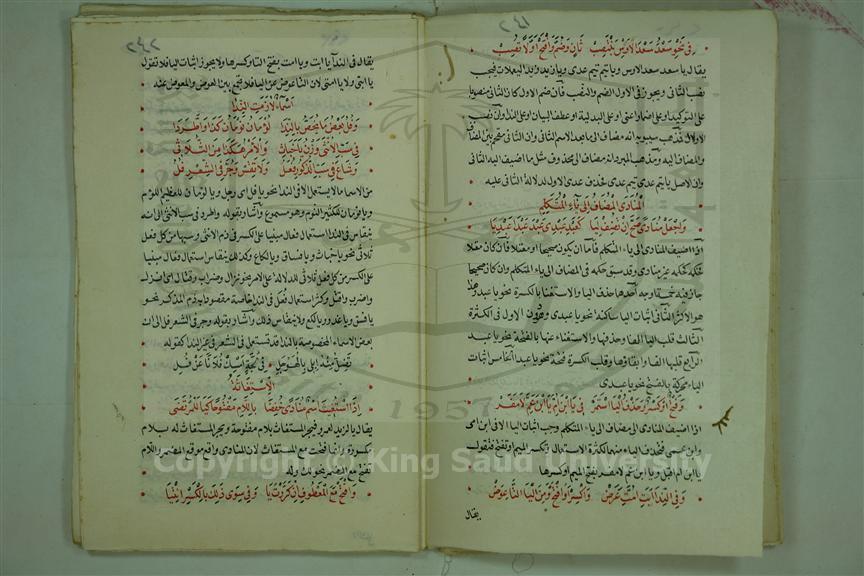 في نحو سعد سعد الاوس ينتصب ثان وضم وافتح اولا تصب
يقال يا سعد سعد الاوس ويا تيم تيم عدي ويا زيد زيد اليعملات فيجب
نصب الثاني ويجوز في الاول الضم والنصب فان ضم الاول كان الثاني منصوبا
على التوكيد او على اضمار اعني او على البدلية او عطف البيان او على الندا وان نصب
الاول فمذهب سيبويه انه مضاف الى ما بعد الاسم الثاني وان الثاني مقحم بين المضاف
والمضاف اليه ومذهب المبرد انه مضاف الى محذوف مثل ما اضيف اليه الثاني
وان الاصل يا تيم عدي تيم عدي فحذف عدي الاول لدلالة الثاني عليه
المنادى المضاف الى ياء المتكلم
واجعل منادى صح ان يضف ليا كعبد عبدي عبد عبدا عبديا
اذا اضيف المنادى الى ياء المتكلم فاما ان يكون صحيحا او معتلا فان كان معتلا
فحكمه كحكمه غير منادى وقد سبق حكمه في المضاف الى ياء المتكلم وان كان صحيحا
جاز فيه خمسة اوجه احدها حذف اليا والاستغنا بالكسرة نحو يا عبد وهذا
هو الاكثر الثاني اثبات اليا ساكنة نحو يا عبدي وهو دون الاول في الكثرة
الثالث قلب اليا الفا وحذفها والاستغناء عنها بالفتحة نحو يا عبد
الرابع قلبها الفا وابقاؤها وقلب الكسرة فتحة نحو يا عبدا الخامس اثبات
الياء محركة بالفتح نحو يا عبدي
وفتح او كسر وحذف اليا استمر في يا ابن ام يا ابن عم لا مفر
اذا اضيف المنادى الى مضاف الى ياء المتكلم وجب اثبات اليا الا في ابن ام
وابن عم فتحذف الياء منهما لكثرة الاستعمال وتكسر الميم او تفتح فتقول
يا ابن ام اقبل ويا ابن عم لا مفر بفتح الميم او كسرها
وفي الندا ابت امت عرض واكسر او افتح ومن اليا التا عوض
يقال
يقال في الندا يا ابت ويا امت بفتح التا وكسرها ولا يجوز اثبات اليا فلا تقول
يا ابتي ولا يا امتي لان التا عوض عن اليا فلا يجمع بين العوض والمعوض عنه
اسماء لازمت الندا
وفل بعض ما يخص بالندا لؤمان نومان كذا واطردا
في سب الانثى وزن يا خباث والامر هكذا من الثلاثي
وشاع في سب الذكور فعل ولا تقس وجر في الشعر فل
من الاسما ما لا يستعمل الا في الندا نحو يا فل اي رجل ويا لؤمان للعظيم اللؤم
ويا نومان للكثير النوم وهو مسموع واشار بقوله واطرد في سب الانثى الى انه
ينقاس في الندا استعمال فعال مبنيا على الكسر في ذم الانثى وسبها من كل فعل
ثلاثي نحو يا خباث ويا فساق ويا لكاع وكذلك ينقاس استعمال فعال مبنيا
على الكسر من كل فعل ثلاثي للدلالة على الامر نحو نزال وضراب وقتال اي انزل
واضرب واقتل وكثر استعمال فعل في الندا خاصة مقصودا به ذم المذكر نحو
يا فسق ويا غدر ويا لكع ولا ينقاس ذلك واشار بقوله وجر في الشعر فل الى ان
بعض الاسماء المخصوصة بالندا قد تستعمل في الشعر في غير الندا كقوله
تضل منه ابلي بالهوجل في لجة امسك فلانا عن فل
الاستغاثة
اذا استغيث اسم منادى خفضا باللام مفتوحا كيا للمرتضى
يقال يا لزيد لعمرو فيجر المستغاث بلام مفتوحة ويجر المستغاث له بلام
مكسورة وانما فتحت مع المستغاث لان المنادى واقع موقع المضمر واللام
تفتح مع المضمر نحو لك وله
وافتح مع المعطوف ان كررت يا وفي سوى ذلك بالكسر ائتيا
Copyright © King Saud University
1957